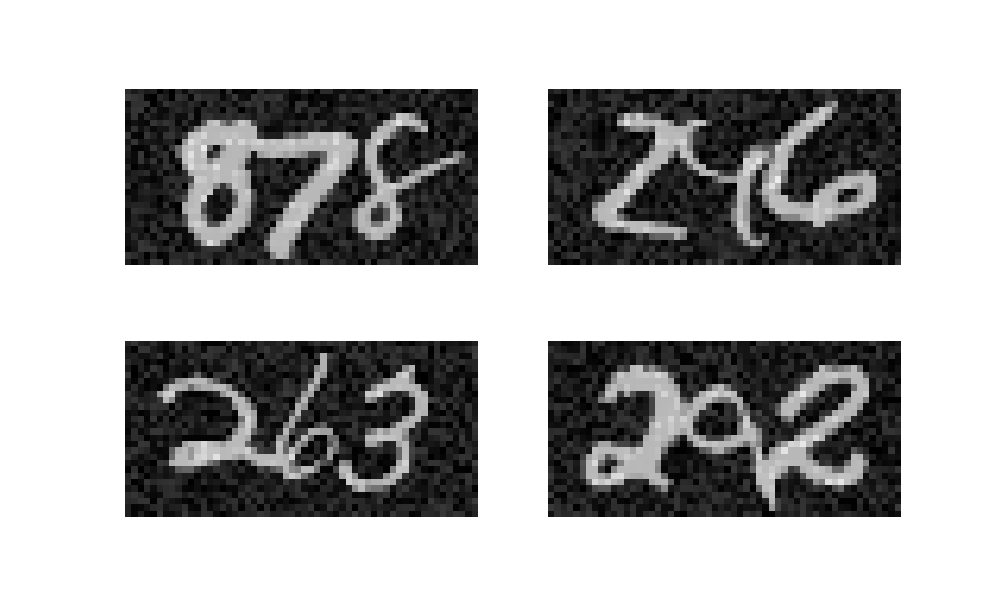 878 246
263 292